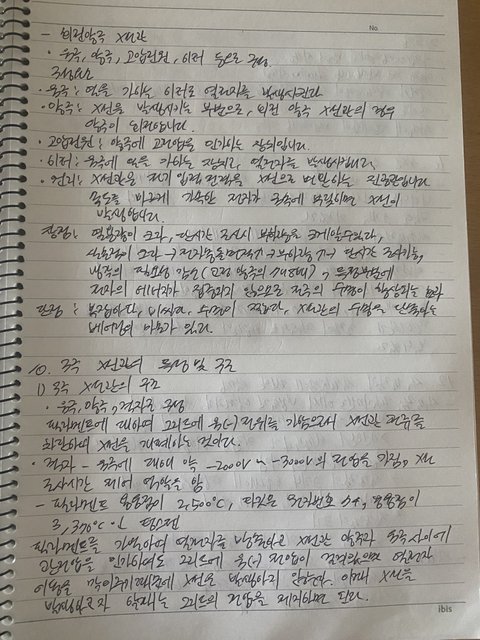 No.
- 회전양극 X선관
· 음극, 양극, 고압전원, 히터 등으로 구성
구성요소
· 음극 : 열을 가하는 히터로 열전자를 발생시킨다
· 양극 : X선을 발생시키는 부분으로, 회전 양극 X선관의 경우
양극이 회전합니다.
· 고압전원 : 양극에 고전압을 인가하는 장치입니다.
· 히터 : 음극에 열을 가하는 장치로, 열전자를 발생시킵니다.
· 원리 : X선관은 전기 입력 전력을 X선으로 변환하는 진공관입니다
속도를 빠르게 가속한 전자가 금속에 부딪히면 X선이
발생합니다.
장점 : 열용량이 크다, 단시간 조사시 부하능을 크게할수있다,
실효초점이 크다 → → 단시간 조사가능,
양극의 감소 (고정 양극의 ), 특정부분에
전자의 에너지가 집중되지 않으므로 전극의 수명이 향상되는 효과
단점 : 복잡하다, 비싸다, 수명이 짧다, X선관의 수명을 단축하는
베어링의 마모가 있다.
10. 3극 X선관의 특성 및 구조
1) 3극 X선관의 구조
· 음극, 양극, 격자로 구성
필라멘트에 대하여 그리드에 음(-)전위를 가함으로써 X선관 전류를
차단하여 X선을 개폐하는 것이다.
· 격자 - 음극에 대해 약 -2000V ~ -3000V의 전압을 가짐, X선
조사시간 제어 역할을 함
- 필라멘트 용융점이 2,500°C, 타깃은 원자번호 74, 용융점이
3,370°C인 텅스텐
필라멘트를 가열하여 열전자를 방출하고 X선관 양극과 음극사이에
관전압을 인가하여도 그리드에 음(-)전압이 걸려있으면 열전자
이동을 막아주기때문에 X선은 발생하지 않는다. 이때 X선을
발생하고자 할때는 그리드의 전압을 제거하면 된다.
ibis